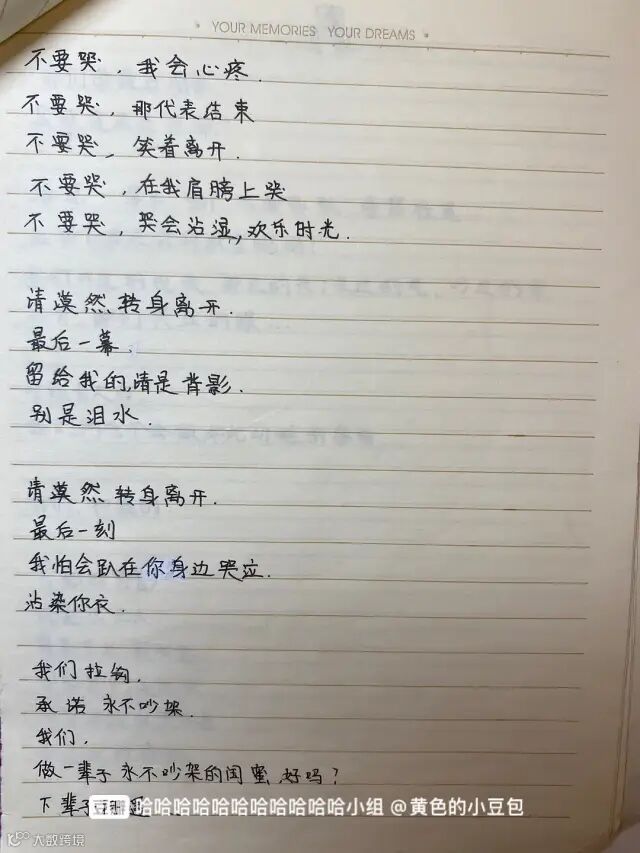 YOUR MEMORIES YOUR DREAMS
不要哭，我会心疼.
不要哭，那代表结束
不要哭，笑着离开.
不要哭，在我肩膀上哭
不要哭，哭会沾湿,欢乐时光.
请漠然转身离开.
最后一幕.
留给我的,请是背影.
别是泪水.
请漠然转身离开.
最后一刻
我怕会趴在你身边哭泣.
沾染你衣.
我们拉钩.
承诺永不吵架.
我们.
做一辈子永不吵架的闺蜜,好吗?
下辈子
豆瓣 哈哈哈哈哈哈哈哈哈哈哈小组 @黄色的小豆包
大数跨境